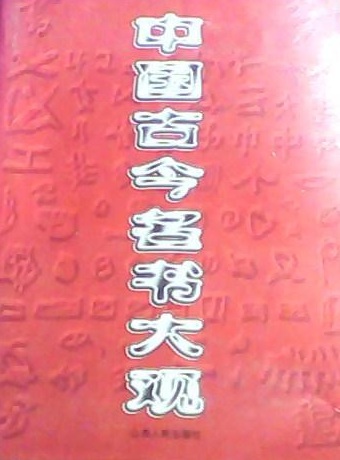 中国古今名书大观